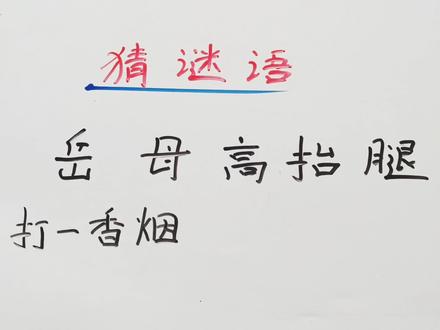 猜谜语
岳母高抬腿
打一香烟